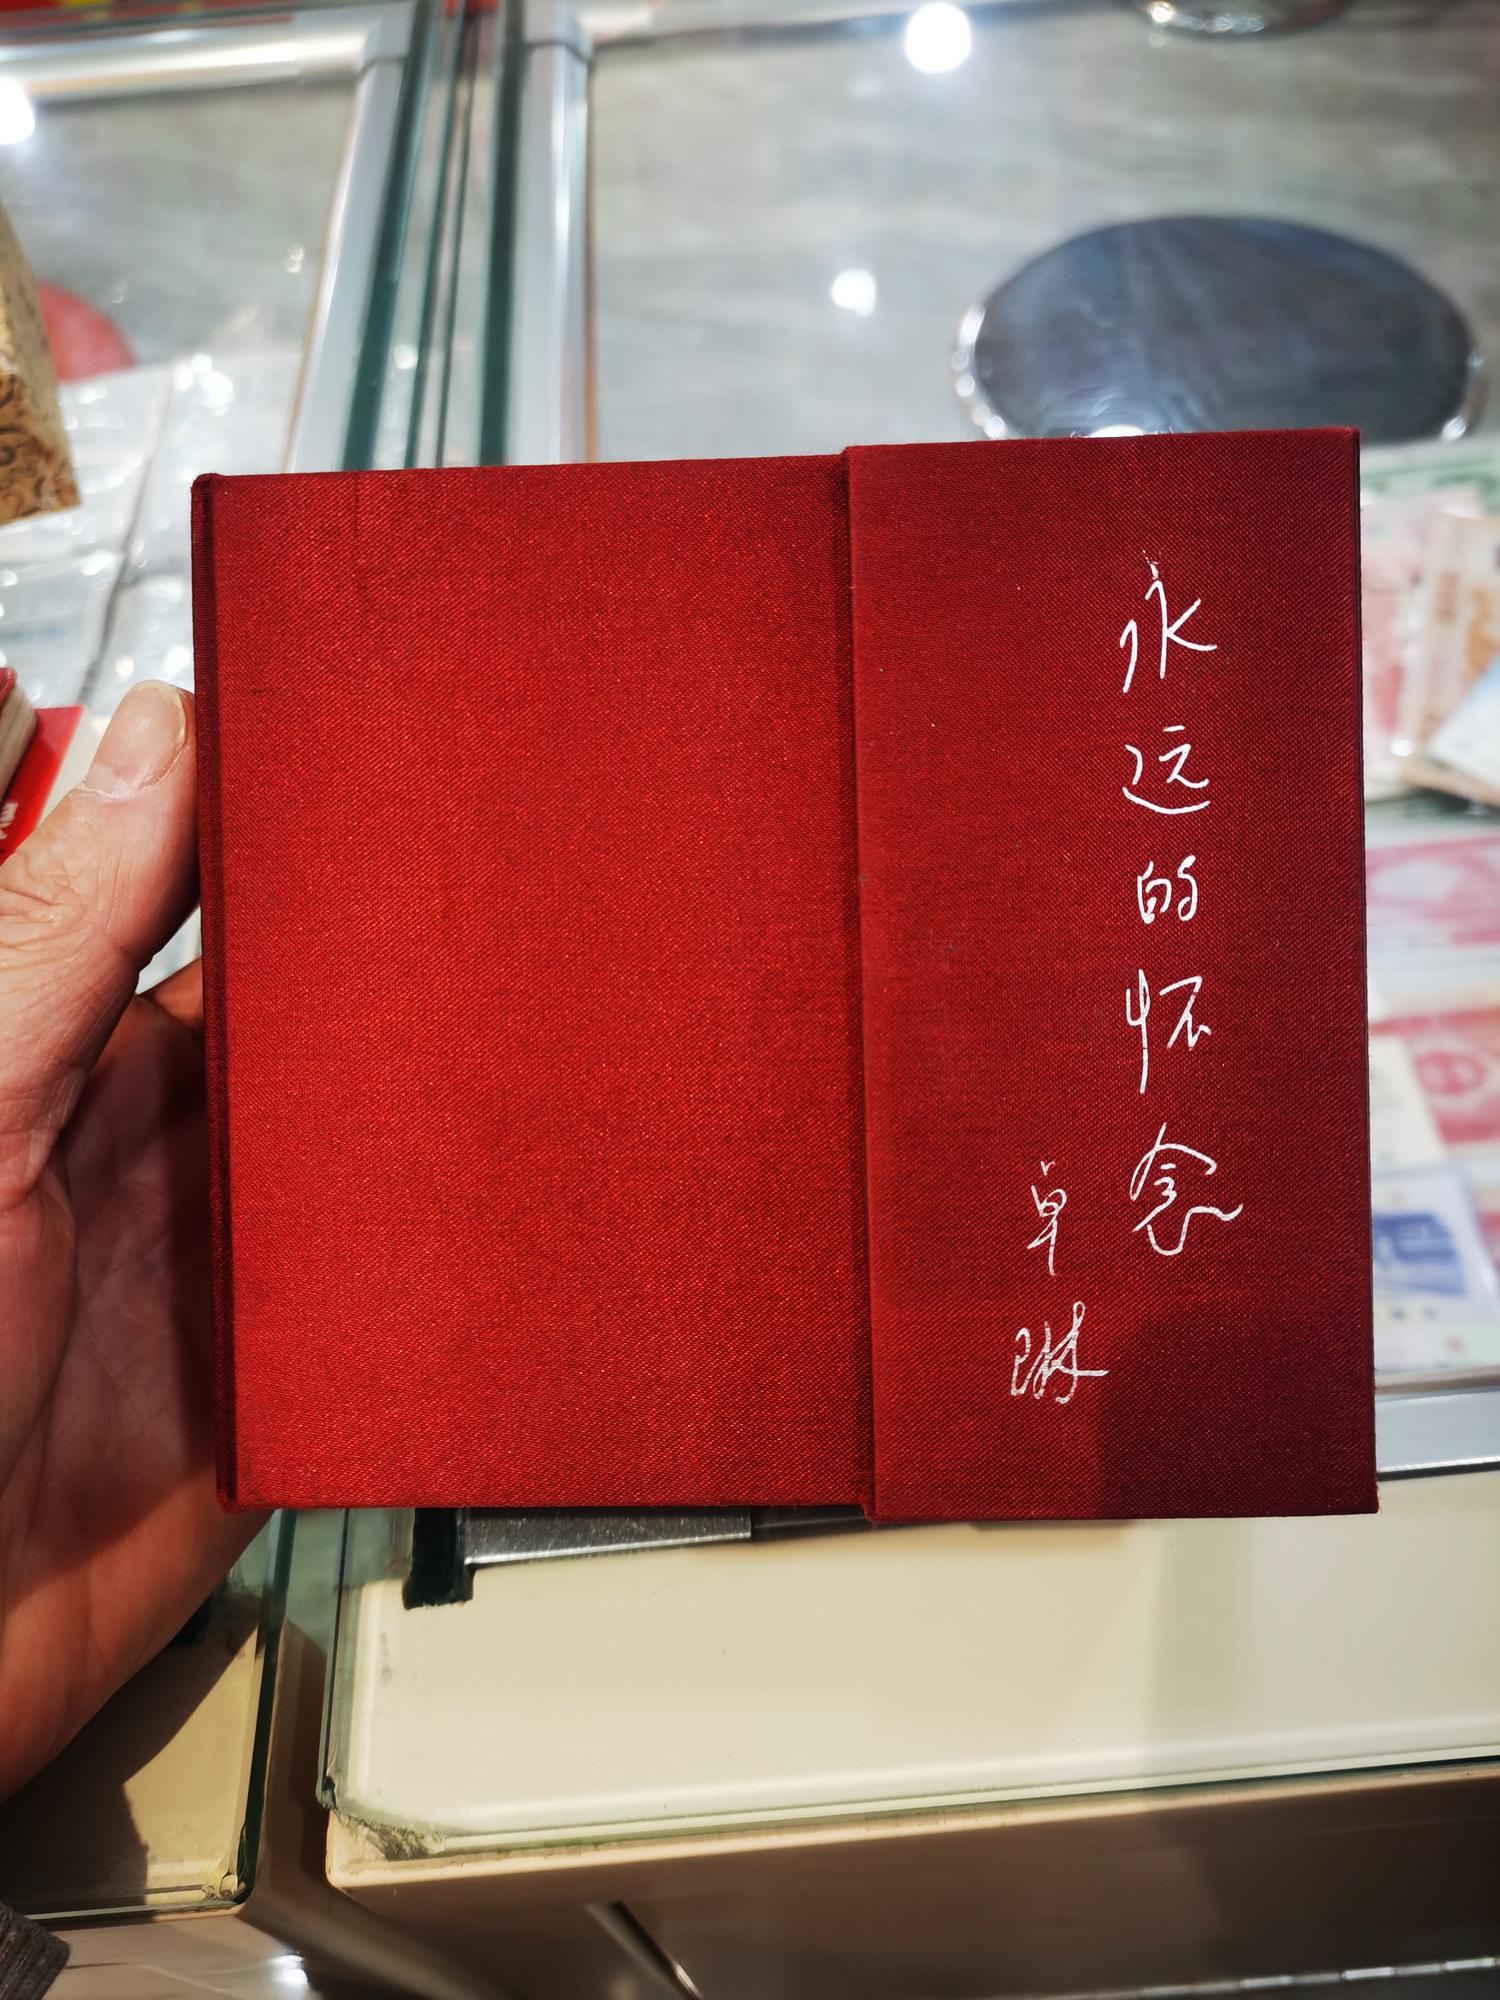 永远的怀念
卓琳